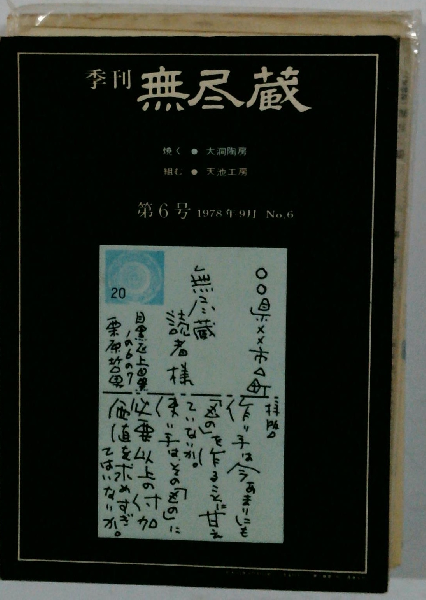 季刊 無尽蔵
焼く ● 大洞陶房
組む ● 天池工房
第6号 1978年9月 No.6
20
〇〇県××市△町
無尽蔵
読者様
目黒区上目黒
1の6の7
栗原哲男
拝啓。
作り手は今あまりにも
「もの」を作ることに甘え
ていないか。
使い手は、その「もの」に
必要以上の付加
価値を求めすぎ
てはいないか。